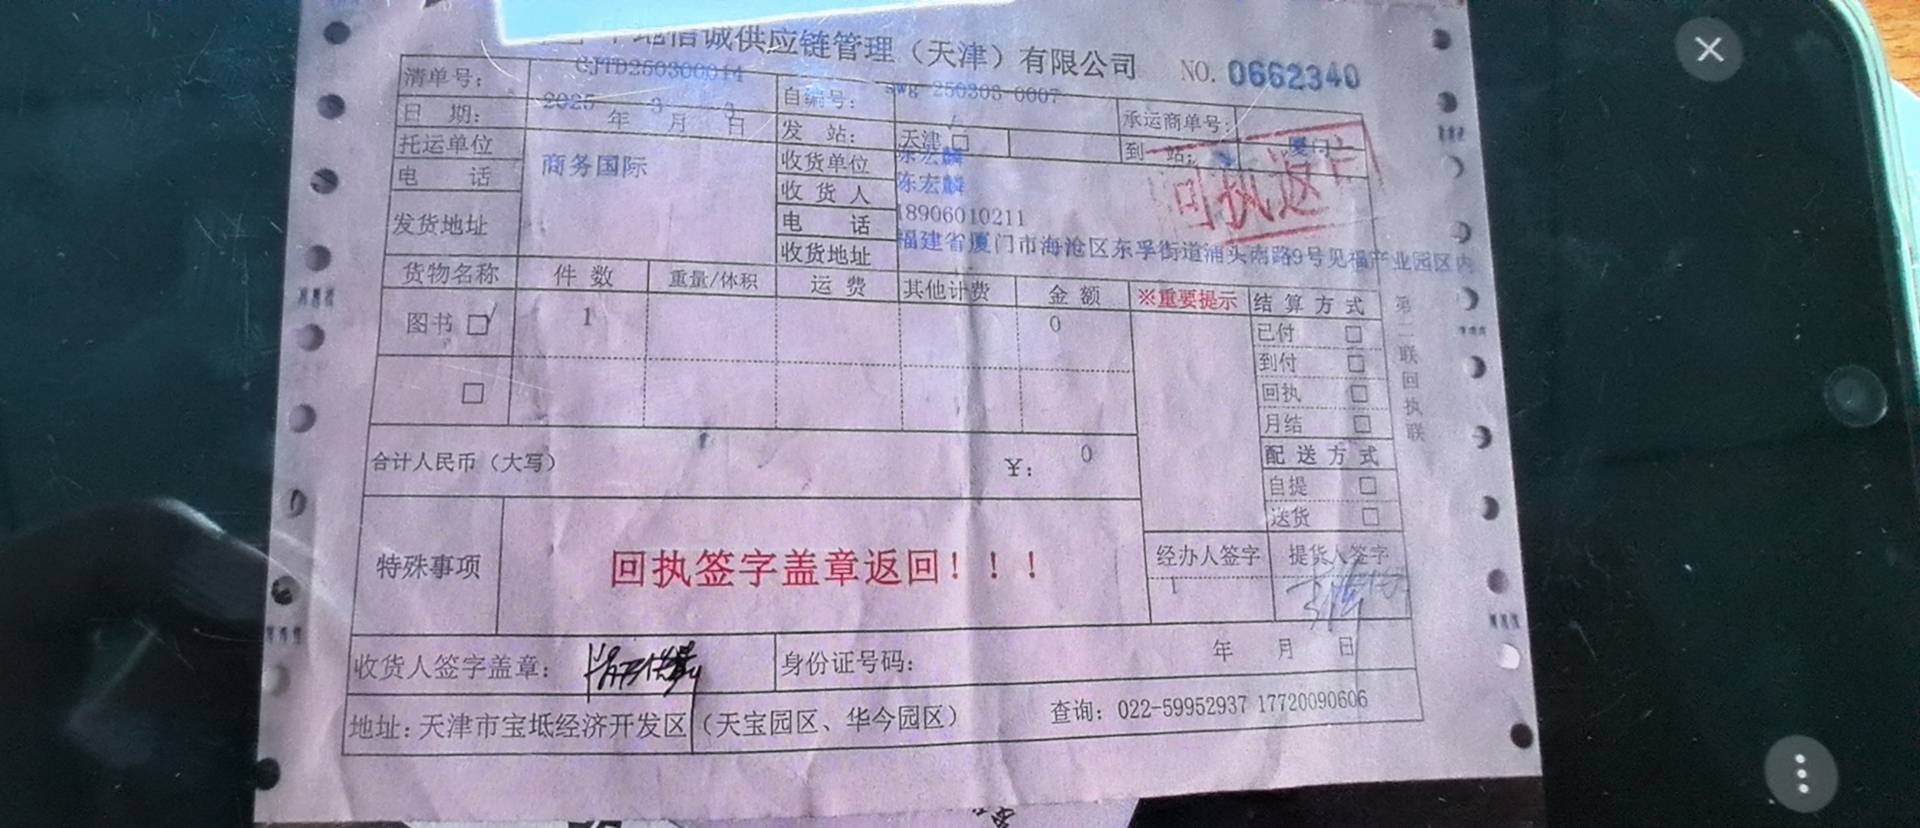 地信诚供应链管理（天津）有限公司 NO. 0662340
清单号： CJTD250300044 自编号： swg 250303 0007 承运商单号：
日 期： 2025 年 3 月 3 日 发 站： 天津 □ 到 站： 厦门
托运单位 商务国际 收货单位 陈宏麟
电 话 收 货 人 陈宏麟
回执返
电 话 18906010211
发货地址 收货地址 福建省厦门市海沧区东孚街道浦头南路9号见福产业园区内
货物名称 件 数 重量/体积 运 费 其他计费 金 额 ※重要提示 结 算 方 式
图书 □ 1 0 已付 □
到付 □
□ 回执 □
月结 □
合计人民币（大写） ¥： 0 配 送 方 式
自提 □
送货 □
第二联回执联
特殊事项 回执签字盖章返回！！！ 经办人签字 提货人签字
收货人签字盖章： 身份证号码： 年 月 日
地址：天津市宝坻经济开发区（天宝园区、华今园区） 查询：022-59952937 17720090606